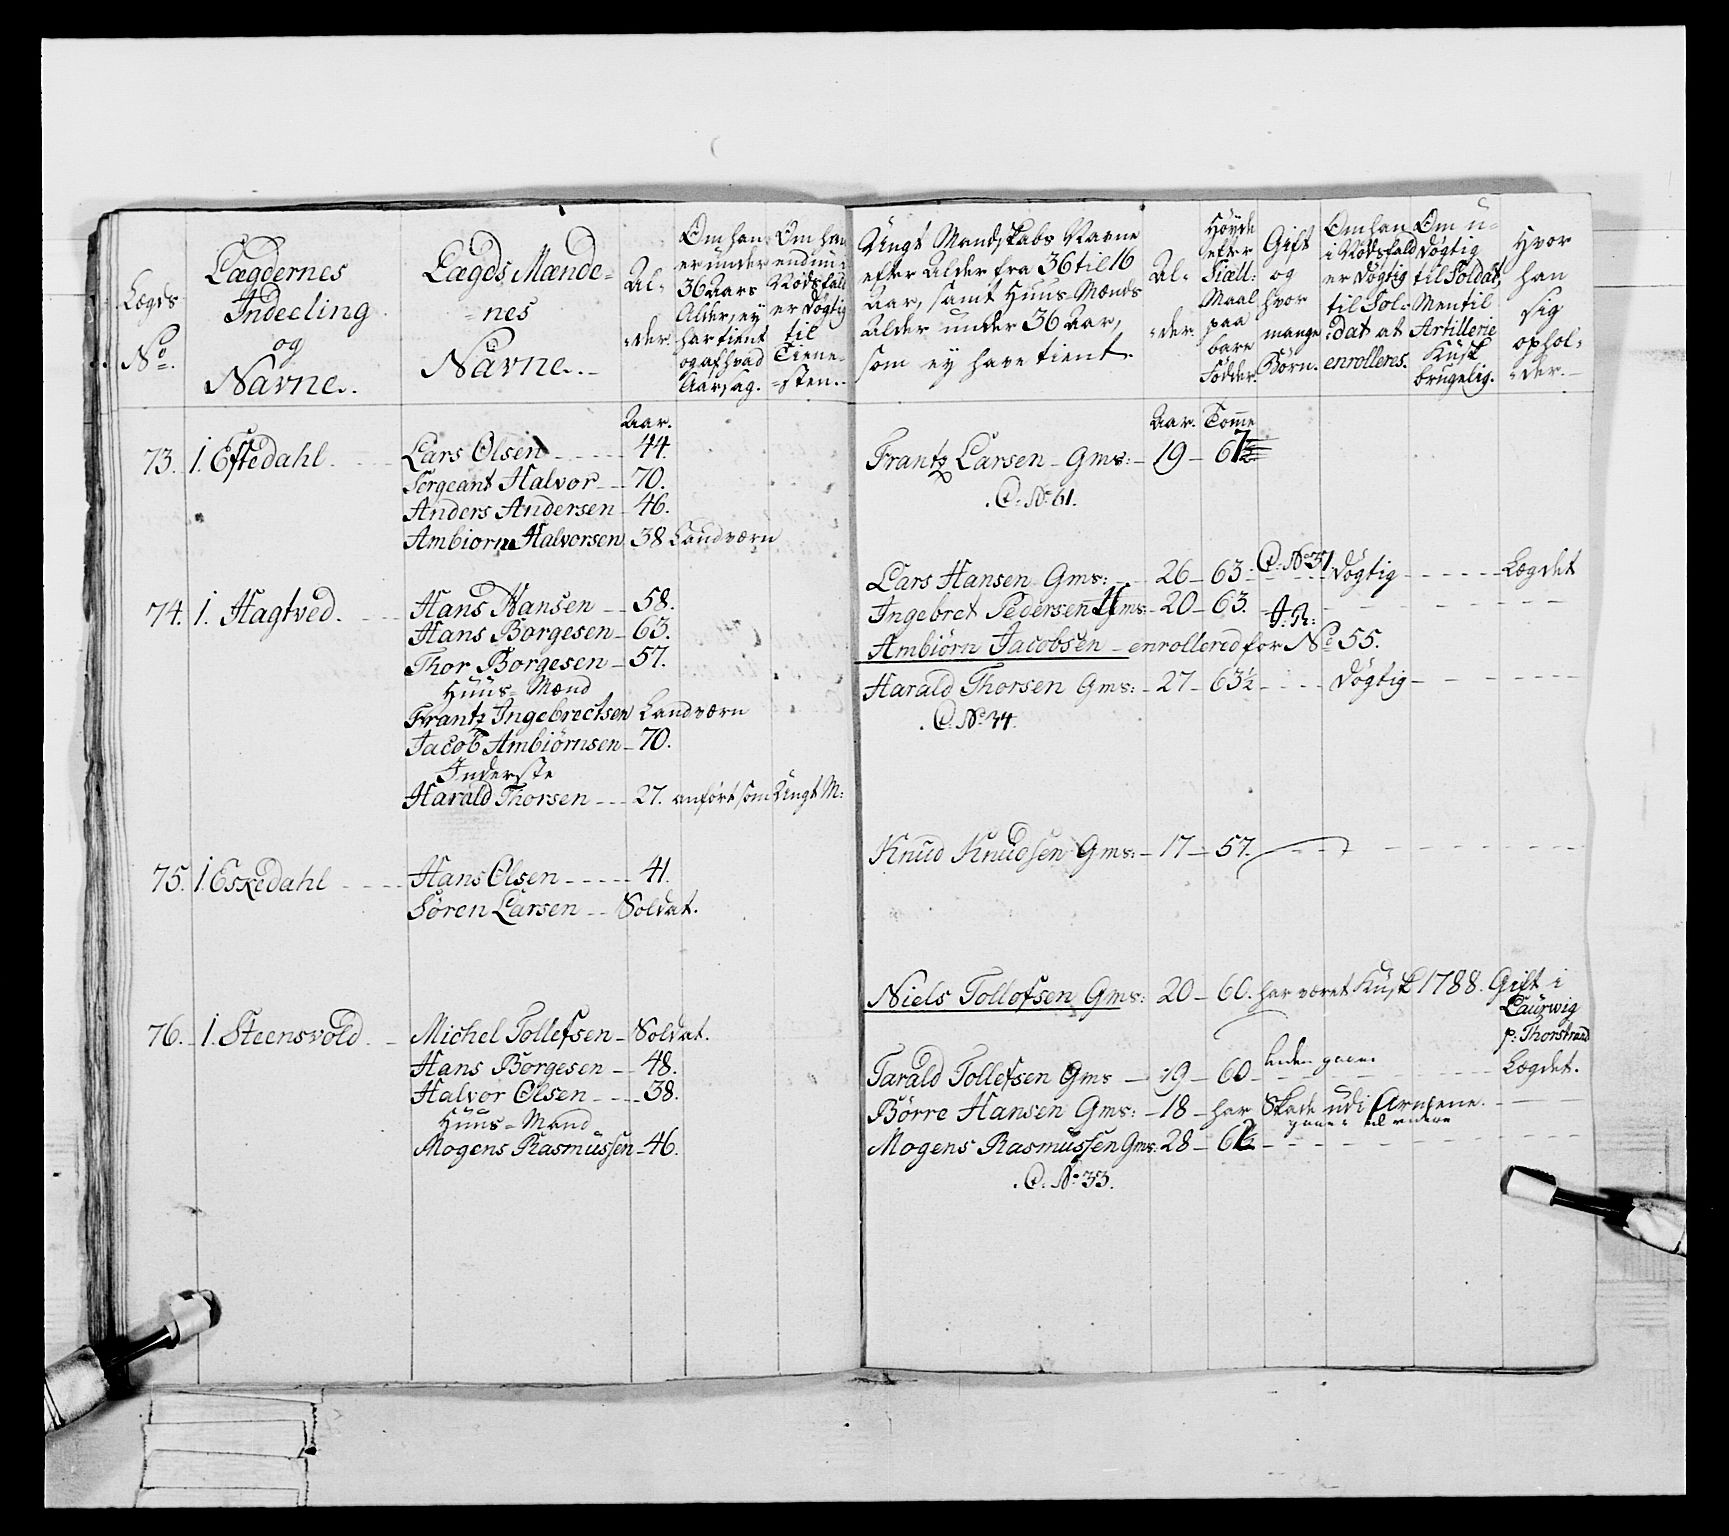 Lægds
No.
Lægdernes
Indeeling
og
Navne.
Lægds Mænde-
-nes
Navne.
Al-
-der.
Om han
er under
36 Aars
Alder, ey
har tient
og af hvad
Aarsag.
Om han
endnu i
Nødsfald
er døgtig
til
Tiene-
-sten.
Ungt Mandskabs Navne
efter Alder fra 36 til 16
Aar, samt Huus-Mænds
Alder under 36 Aar,
som ey have tient.
Al-
-der.
Høyde
efter
Siæll:
Maal
paa
bare
Fødder.
Gift
og
hvor
mange
Børn.
Om han
i Nødsfald
er døgtig
til Sol-
-dat at
enrolleres.
Om u-
døgtig
til Soldat,
Men til
Artillerie
Kusk
brugelig.
Hvor
han
sig
ophol-
-der.
Aar.
Aar. Tomme
73. 1. Eftedahl. Lars Olsen 44.
Sergeant Halvor 70.
Anders Andersen 46.
Ambiorn Halvorsen 38 Landværn
Frantz Larsen Gms: 19 67½
C. No. 61.
74. 1. Hagtved. Hans Hansen 58.
Hans Borgesen 63.
Thor Borgesen 57.
Huus-Mænd
Frantz Ingebrectsen Landværn
Jacob Ambiörnsen 70.
Inderste
Harald Thorsen 27. anført som Ungt M:
C. No. 31
Lars Hansen Gms: 26 63 Døgtig Lægdet
Ingebret Pedersen Gms: 20 63.
Ambiörn Jacobsen enrollered for No. 55.
Harald Thorsen Gms: 27 63½ Døgtig
C. No. 34.
75. 1. Eskedahl Hans Olsen 41.
Søren Larsen Soldat.
Knud Knudsen Gms: 17 57.
76. 1. Steensvold Michel Tollefsen Soldat.
Hans Borgesen 48.
Halvor Olsen 38.
Huus-Mand
Mogens Rasmussen 46.
Niels Tollofsen Gms: 20 60. har været Kusk 1788. Gift i
Laurwig
p: Thorstrand
Tarald Tollefsen Gms 19 60 Lægdet.
Börre Hansen Gms: 18 har Skade udi Armene.
Mogens Rasmussen Gms: 28
C. No. 33.